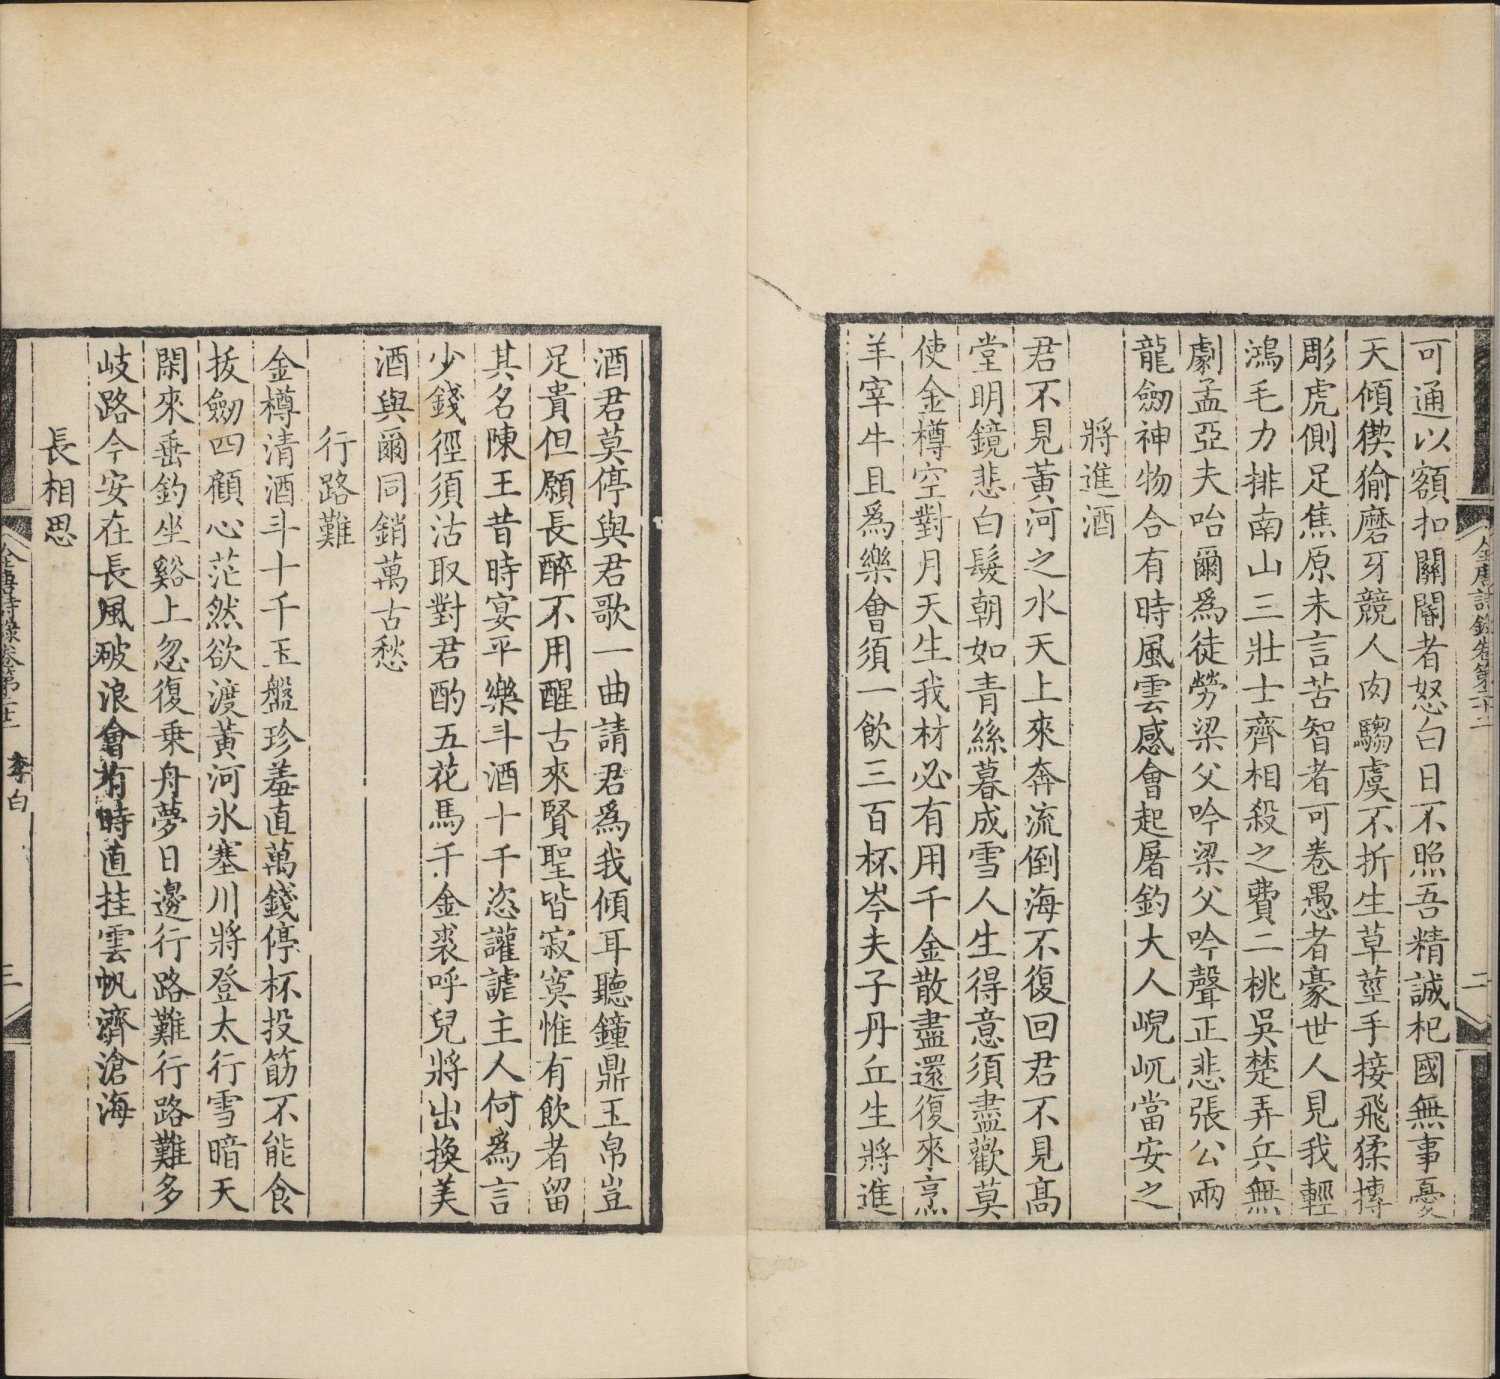 全唐詩錄卷第二十二
二
可通以額扣關閽者怒白日不照吾精誠杞國無事憂
天傾猰㺄磨牙競人肉騶虞不折生草莖手接飛猱摶
彫虎側足焦原未言苦智者可卷愚者豪世人見我輕
鴻毛力排南山三壯士齊相殺之費二桃吳楚弄兵無
劇孟亞夫咍爾爲徒勞梁父吟梁父吟聲正悲張公兩
龍劒神物合有時風雲感會起屠釣大人峴屼當安之
將進酒
君不見黃河之水天上來奔流倒海不復回君不見高
堂明鏡悲白髮朝如青絲暮成雪人生得意須盡歡莫
使金樽空對月天生我材必有用千金散盡還復來烹
羊宰牛且爲樂會須一飲三百杯岑夫子丹丘生將進
酒君莫停與君歌一曲請君爲我傾耳聽鐘鼎玉帛豈
足貴但願長醉不用醒古來賢聖皆寂寞惟有飲者留
其名陳王昔時宴平樂斗酒十千恣讙謔主人何爲言
少錢徑須沽取對君酌五花馬千金裘呼兒將出換美
酒與爾同銷萬古愁
行路難
金樽清酒斗十千玉盤珍羞直萬錢停杯投筯不能食
拔劒四顧心茫然欲渡黃河氷塞川將登太行雪暗天
閑來垂釣坐谿上忽復乘舟夢日邊行路難行路難多
岐路今安在長風破浪會有時直挂雲帆濟滄海
長相思
全唐詩錄卷第二十二 李白
三